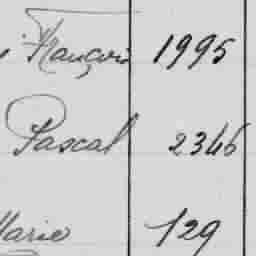 François 1995
Pascal 2346
Marie 129